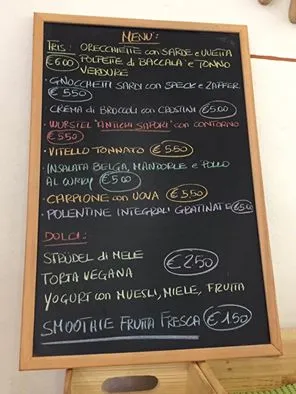 MENU:
TRIS: ORECCHIETTE con SARDE e UVETTA
€6.00 POLPETTE di BACCALA' e TONNO
VERDURE
·GNOCCHETTI SARDI con SPECK e ZAFFER.
€5.50
·CREMA di BROCCOLI con CROSTINI €5.00
·WURSTEL "ANTICHI SAPORI" con CONTORNO
€5.50
·VITELLO TONNATO €5.50
·INSALATA BELGA, MANDORLE e POLLO
AL CURRY €5.00
·CARPIONE con UOVA €5.50
·POLENTINE INTEGRALI GRATINATE €5.00
DOLCI:
STRUDEL di MELE €2.50
TORTA VEGANA
YOGURT con MUESLI, MIELE, FRUTTA
SMOOTHIE FRUTTA FRESCA €1.50